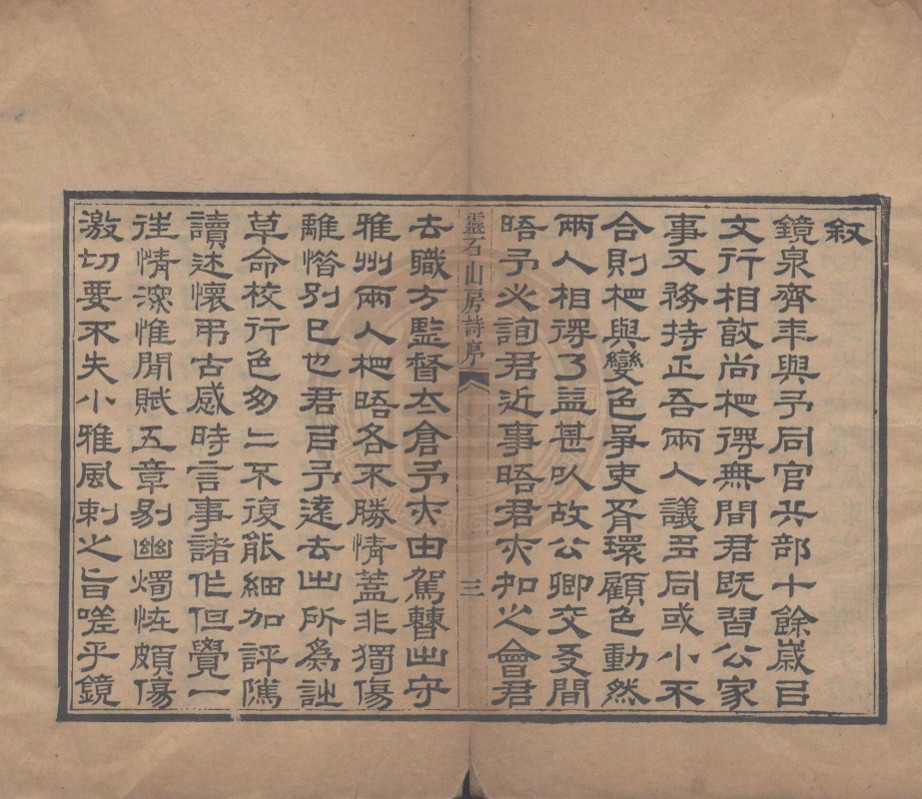 叙
鏡泉齊年與予同官兵部十餘歲㠯
文行相敦尚極得無間君既習公家
事又務持正吾兩人議多同或小不
合則極與變色爭吏胥環顧色動然
兩人相得乃益甚以故公卿交友間
晤予必詢君近事晤君亦如之會君
靈石山房詩序 三
去職方監督太倉予亦由駕曹出守
雅州兩人極晤各不勝情蓋非獨傷
離惜別已也君㠯予遠去出所為詩
草命校行色匆匆不復能細加評隲
讀述懷弔古感時言事諸作但覺一
往情深惟聞賦五章剔幽燭怪頗傷
激切要不失小雅風刺之旨嗟乎鏡